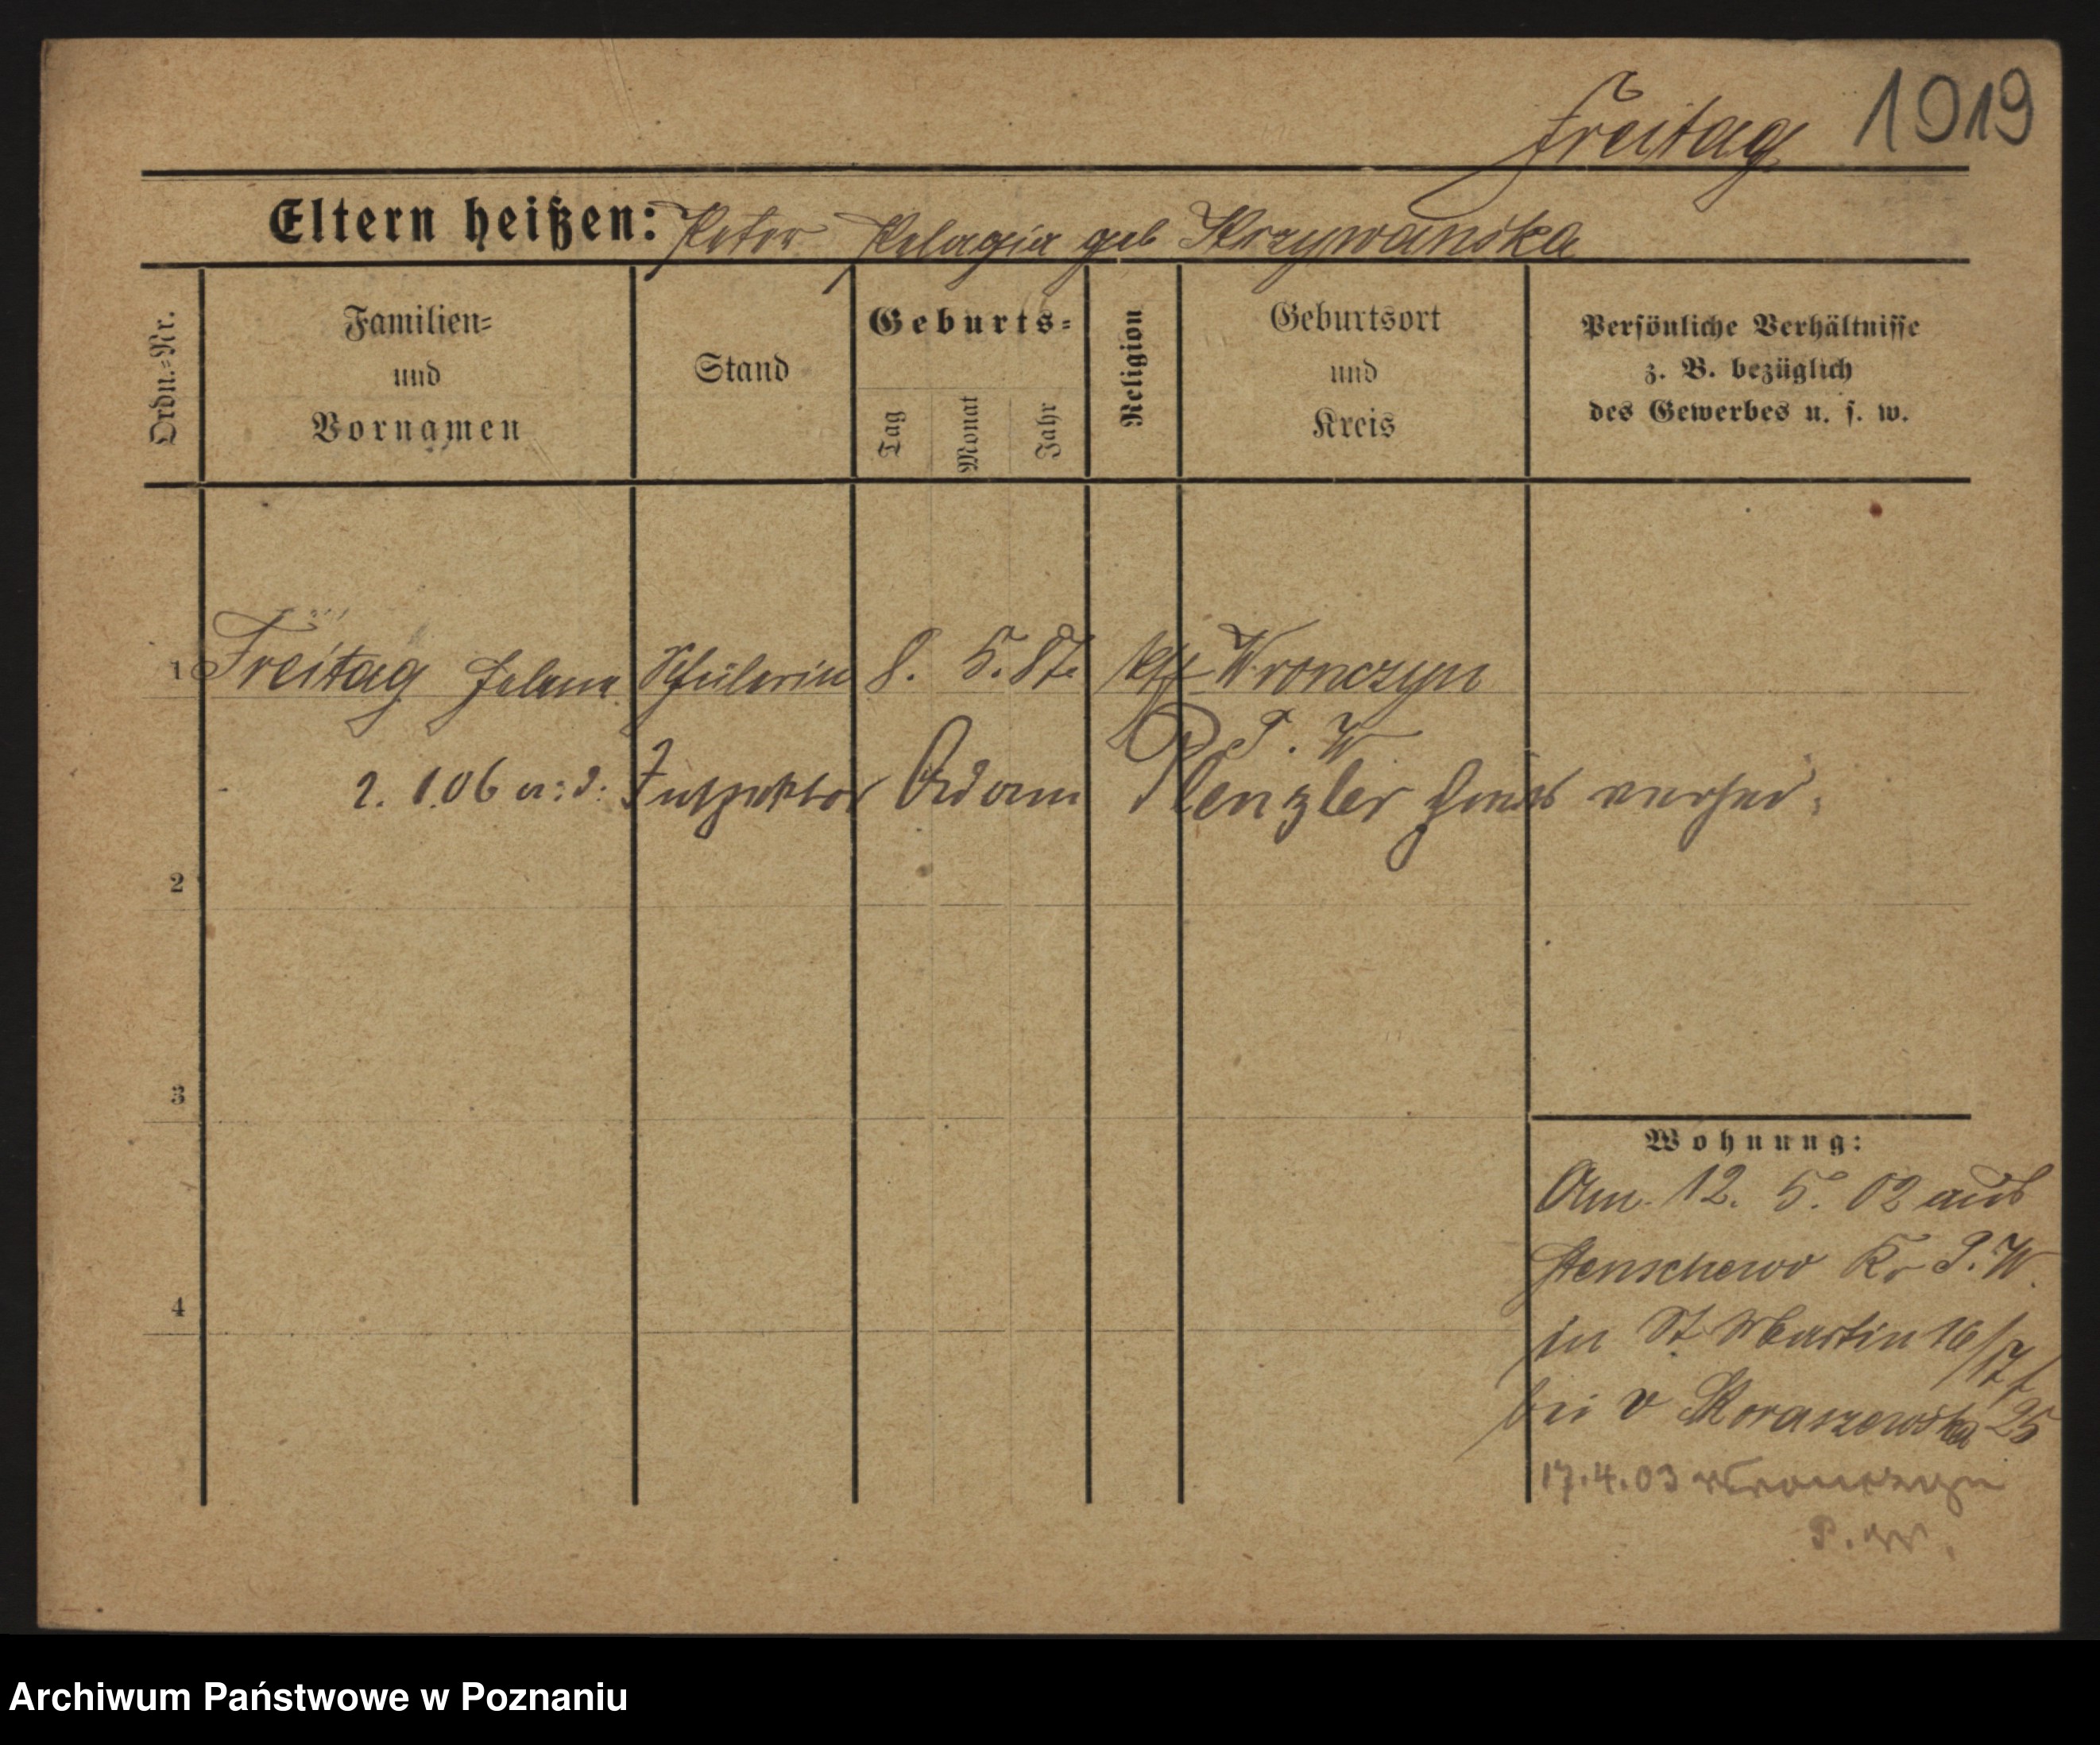 Freitag 1019
Eltern heißen: Peter Pelagia geb Skrzywanska
Ordn.=Nr.
Familien=
und
Vornamen
Stand
Geburts=
Tag
Monat
Jahr
Religion
Geburtsort
und
Kreis
Persönliche Verhältnisse
z. B. bezüglich
des Gewerbes u. s. w.
1 Freitag Helena Schülerin 8. 5. 87. kth Wronczyn
P. W
2. 1.06 a: d: Inspektor Adam Plenzler hier verhei.
2
3
4
Wohnung:
Am 12. 5. 02 aus
Stenschewo Kr P. W.
in St Martin 16/17
bei v Skoraszewska 25
17.4.03 Wronczyn
P. W.
Archiwum Państwowe w Poznaniu